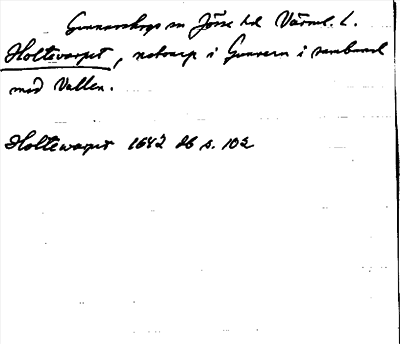 Gunnarskogs sn Jösse hd Värml. l.
Holtevarpet, notvarp i Gunnern i samband
med Vallen.
Holtewarpet 1642 db s. 102